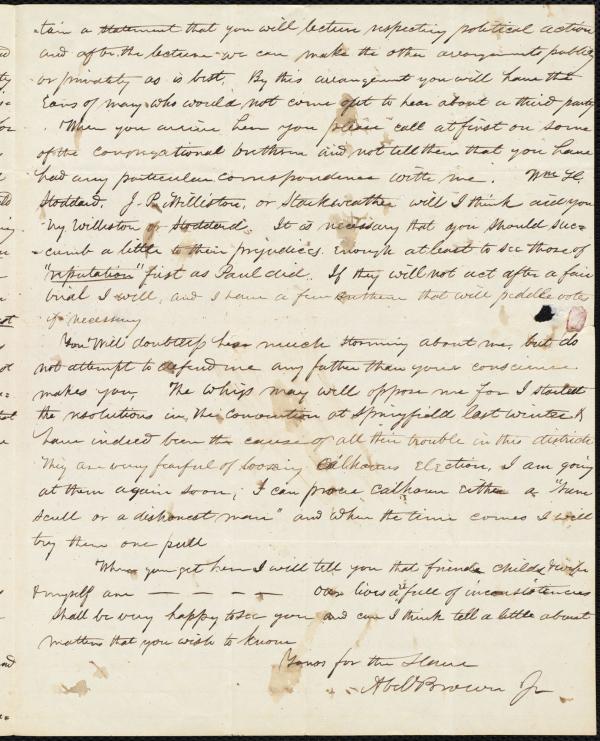 tain a statement that you will lecture respecting political action
and after the lecture we can make the other arrangements publicly
or privately as is best. By this arrangement you will have the
Ears of many who would not come out to hear about a third party
. When you arrive here you please call at first on some
of the congregational brethren and not tell them that you have
had any particular correspondence with me. Wm H.
Stoddard, J. P. Williston, or Starkweather will I think aid you
Williston or Stoddard. It is necessary that you should suc=
=cumb a little to their prejudices. Enough at least to see those of
"reputation" first as Paul did. If they will not act after a fair
trial I will, and I have a few brethren that will peddle votes
if necessary
You will doubtless hear much storming about me, but do
not attempt to defend me any farther than your conscience
makes you, The Whigs may will oppose me for I started
the resolutions in the convention at Springfield last winter &
have indeed been the cause of all their trouble in this district
They are very fearful of loosing Calhouns Election, I am going
at them again soon, I can prove Calhoun either a
scull or a dishonest man" and when the time comes I will
try them one pull
When you get here I will tell you that friends child & wife
& myself are — — — — our lives are full of inconsistencies
Shall be very happy to see you and can I think tell a little about
matters that you wish to know
Yours for the Slave
Abel Brown Jr